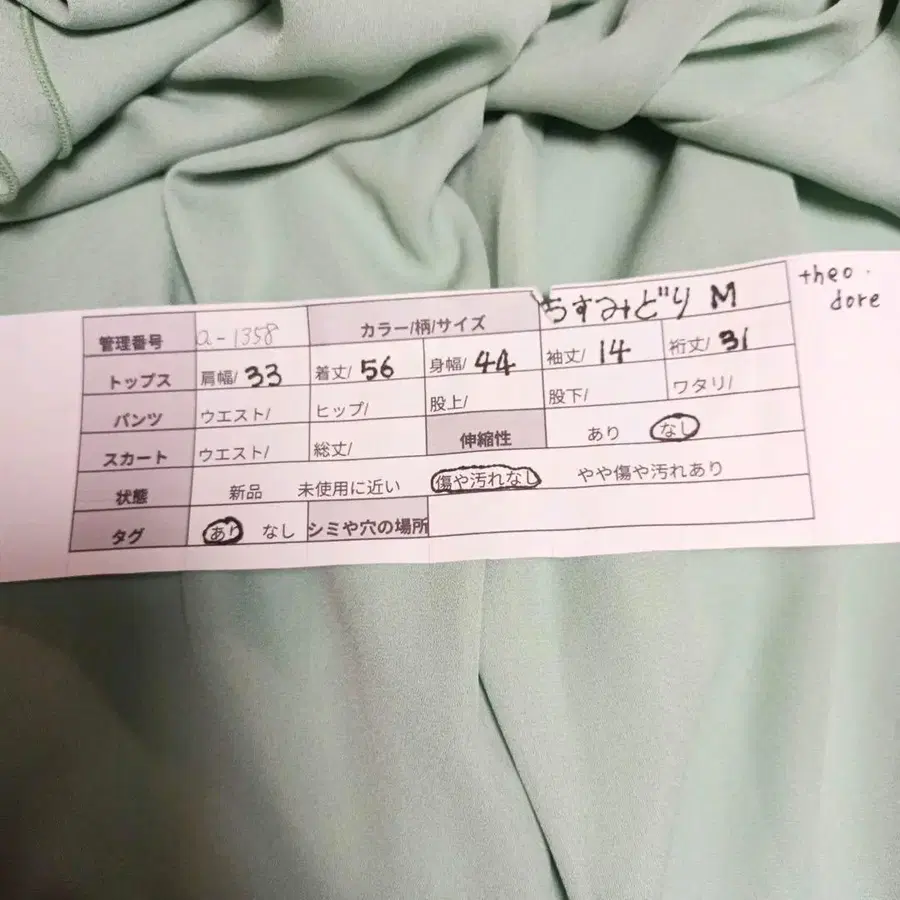 theo.
dore
管理番号 a-1358 カラー/柄/サイズ うすみどり M
トップス 肩幅/ 33 着丈/ 56 身幅/ 44 袖丈/ 14 裄丈/ 31
パンツ ウエスト/ ヒップ/ 股上/ 股下/ ワタリ/
スカート ウエスト/ 総丈/ 伸縮性 あり なし
状態 新品 未使用に近い 傷や汚れなし やや傷や汚れあり
タグ あり なし シミや穴の場所